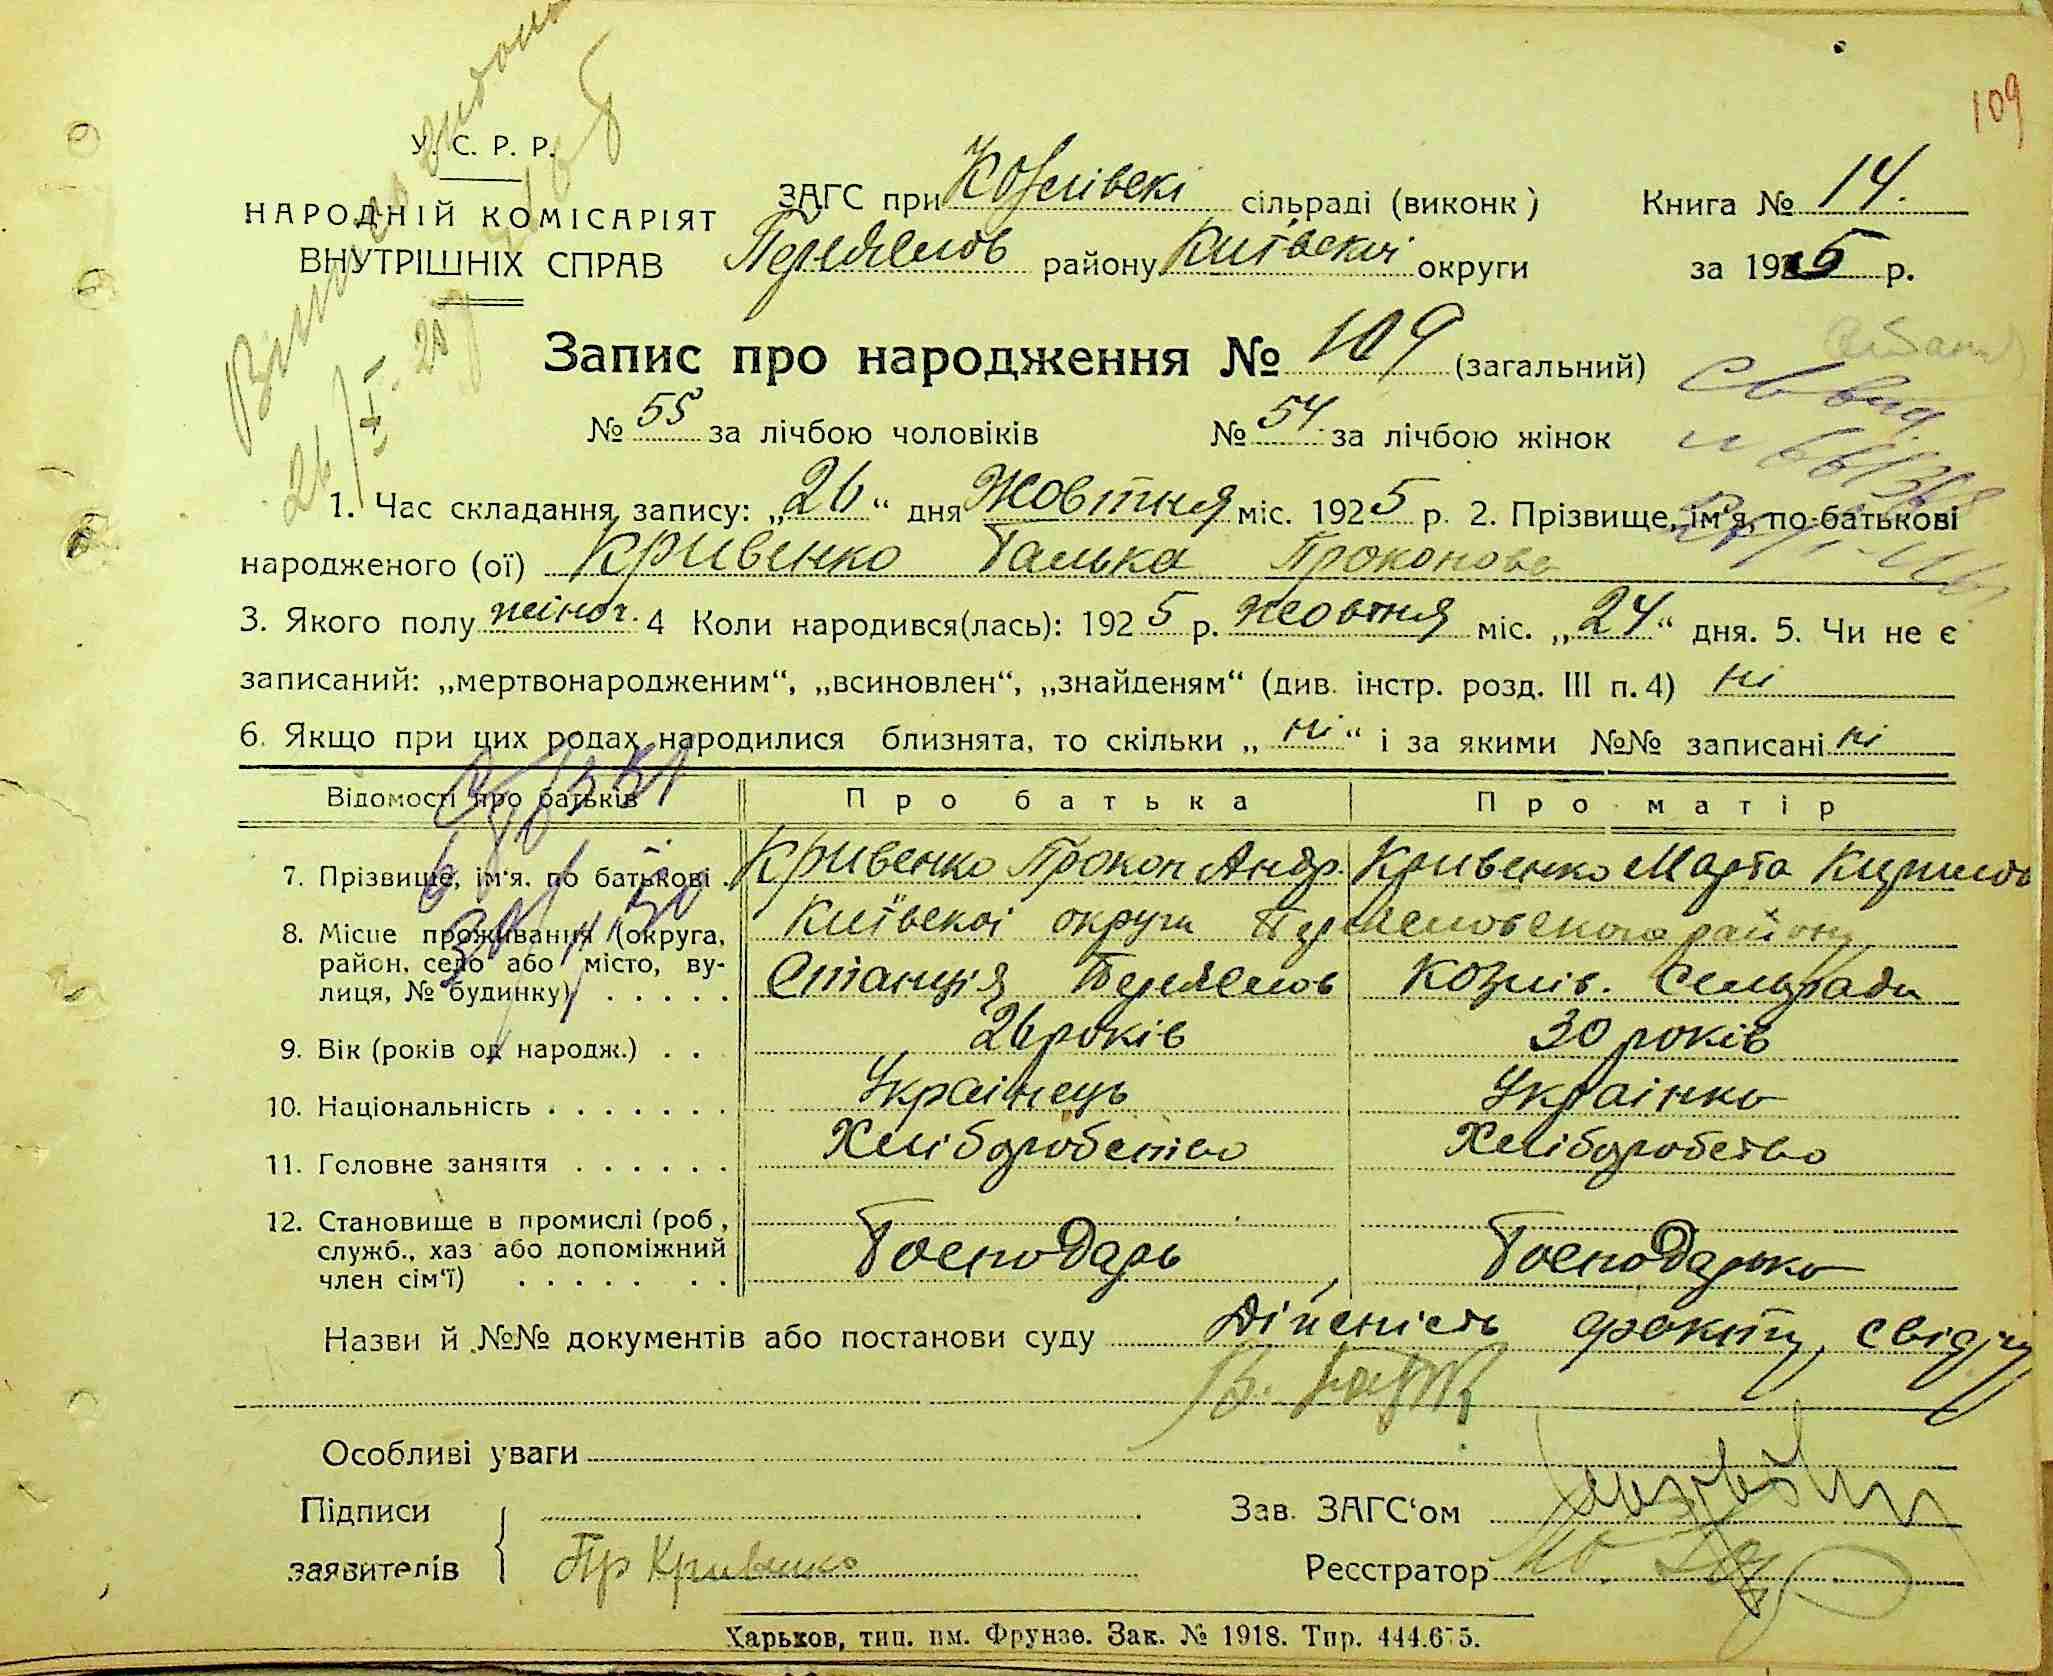 109
У. С. Р. Р.
НАРОДНІЙ КОМІСАРІЯТ
ВНУТРІШНІХ СПРАВ
ЗАГС при Козлівскі сільраді (виконк)
району Київскої округи
Книга № 14.
за 1925 р.
Запис про народження № 109 (загальний)
№ 55 за лічбою чоловіків № 54. за лічбою жінок
1. Час складання запису: „26“ дня Жовтня міс. 1925 р. 2. Прізвище, ім'я, по-батькові
народженого (ої) Кривенко Галька Проконова
3. Якого полу жіноч. 4 Коли народився(лась): 1925 р. жовтня міс. „24“ дня. 5. Чи не є
записаний: „мертвонародженим“, „всиновлен“, „знайденям“ (див. інстр. розд. III п. 4) ні
6. Якщо при цих родах народилися близнята, то скільки „ні“ і за якими №№ записані ні
Відомості про батьків Про батька Про матір
7. Прізвище, ім'я. по батькові . Кривенко Прокоп Андр. Кривенко Марта Кирилов
8. Місце проживання (округа, район, село або місто, вулиця, № будинку) . . . . . Київскоі округи району
Станція Козлів. Сельради
9. Вік (років од народж.) . . 26 років 30 років
10. Національність . . . . . . . Украінець Украінка
11. Головне заняття . . . . . . Хліборобство Хліборобство
12. Становище в промислі (роб,
служб., хаз або допоміжний
член сім'ї) . . . . . . . Господарь Господарька
Назви й №№ документів або постанови суду Дійсність факту, свідчу
Особливі уваги
Підписи
заявителів Пр Кривенко
Зав. ЗАГС'ом
Реєстратор
Харьков, тип. им. Фрунзе. Зак. № 1918. Тир. 444.675.